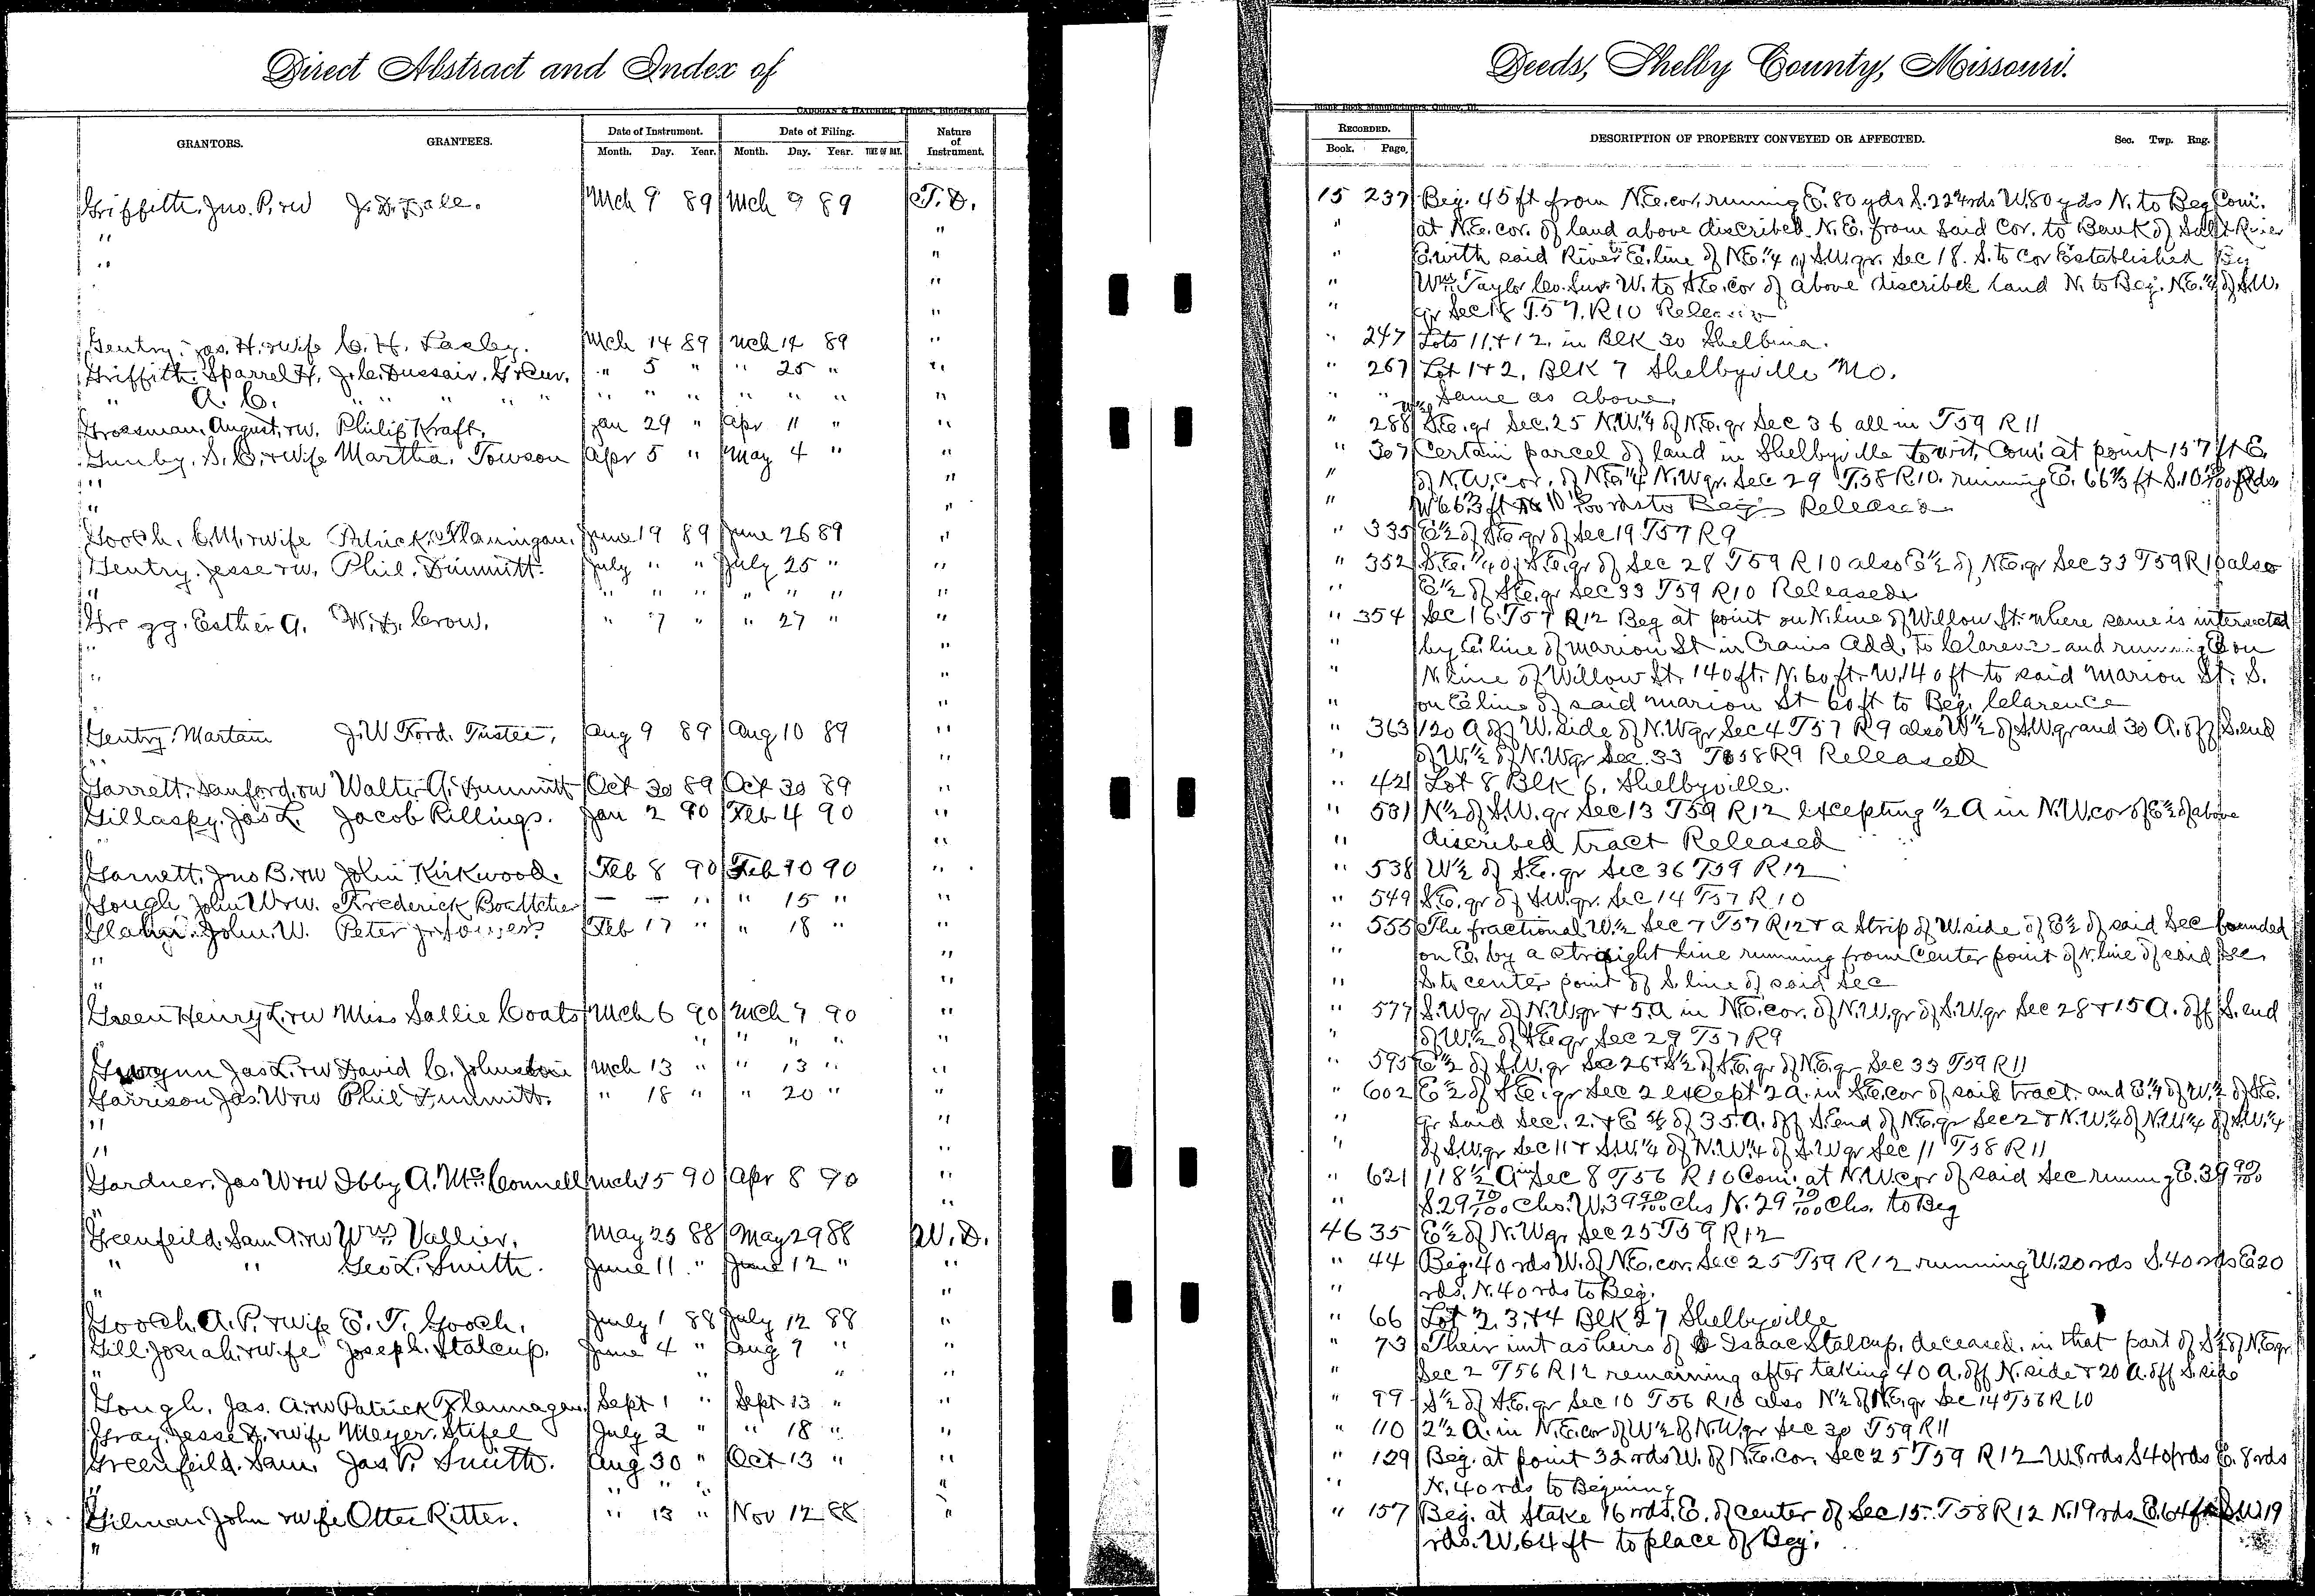 Direct Abstract and Index of
Deeds, Shelby County, Missouri.
CADOGAN & HATCHER, Printers, Binders and
Blank Book Manufacturers, Quincy, Ill.
GRANTORS. GRANTEES. Date of Instrument. Date of Filing. Nature of Instrument.
Month. Day. Year. Month. Day. Year. TIME OF DAY.
RECORDED. DESCRIPTION OF PROPERTY CONVEYED OR AFFECTED. Sec. Twp. Rng.
Book. Page.
Griffith, Jno. P. rw J. D. Dale. Mch 9 89 Mch 9 89 T. D. 15 237 Beg. 45 ft from N.E. cor. running E. 80 yds S. 22 rds W. 80 yds N. to Beg Com.
" " " at N.E. cor. of land above discribed N.E. from said Cor. to Bank of Salt River
" " " E. with said River to E. line of N.E. ¼ of S.W. qr. Sec 18. S. to Cor Established By
" " Wm. Taylor Co. Sur. W. to S.E. cor of above discribed land N. to Beg. N.E. ¼ of S.W.
" " qr Sec 18 T. 57. R 10 Release
Gentry, Jas. H. rwife C. H. Lasley. Mch 14 89 Mch 14 89 " " 247 Lots 11 + 12. in BLK 30 Shelbina.
Griffith. Sparrel H. J. C. Dussair. Gr Cur. " 5 " " 25 " " " 267 Lot 1 + 2, BLK 7 Shelbyville Mo.
" A. C. " " " " " " " " " " " " " Same as above.
Grossman, August, rw. Philip Kraft, Jan 29 " Apr 11 " " " 288 W½ S.E. qr Sec. 25 N.W. ¼ of N.E. qr Sec 36 all in T59 R11
Gunby, S. C. rwife Martha. Towson Apr 5 " May 4 " " " 307 Certain parcel of land in Shelbyville to wit, Com. at point 157 ft E.
" " " of N.W. cor. of N.E. ¼ N.W qr. Sec 29 T.58 R10. running E. 66⅔ ft S. 10 rds.
" " " W 66⅔ ft N 10 rds to Beg Released
Gooch, C. M. rwife Patrick Flannigan. June 19 89 June 26 89 " " 335 E½ of S.E. qr of Sec 19 T57 R9
Gentry. Jesse rw. Phil. Dimmitt. July " " July 25 " " " 352 S.E. ¼ of S.E. qr of Sec 28 T59 R10 also E½ of N.E. qr Sec 33 T59 R10 also
" " " " " " " " E½ of S.E. qr Sec 33 T59 R10 Released
Gregg. Esther A. W. D. Crow. " 7 " " 27 " " " 354 Sec 16. T57 R12 Beg at point on N. line of Willow St. where same is intersected
" " " by E. line of Marion St in Crains Add. to Clarence and running E on
" " " N. line of Willow St. 140 ft. N. 60 ft. W. 140 ft to said Marion St. S.
" " on E line of said Marion St 60 ft to Beg. Clarence
Gentry. Martain J. W Ford. Trustee, Aug 9 89 Aug 10 89 " " 363 120 A off W. side of N.W qr Sec 4 T57 R9 also W½ of S.W qr and 30 A. off S. end
" " " of W½ of N.W qr Sec. 33 T58 R9 Released
Garrett. Sanford. rw Walter A. Dimmitt Oct 30 89 Oct 30 89 " " 421 Lot 8 BLK 6. Shelbyville.
Gillaspy. Jas L. Jacob Rillings. Jan 2 90 Feb 4 90 " " 531 N½ of S.W. qr Sec 13 T59 R12 excepting ½ A in N.W. cor of E½ of above
" " " discribed tract Released
Garnett, Jno B. rw John Kirkwood. Feb 8 90 Feb 10 90 " " 538 W½ of S.E. qr Sec 36 T59 R12
Gough John W rw. Frederick Boettcher — — " " 15 " " " 549 S.E. qr of S.W. qr. Sec 14 T57 R10
John. W. Peter J. Feb 17 " " 18 " " " 555 The fractional W.½ Sec 7 T57 R12 + a Strip of W. side of E½ of said Sec bounded
" " " on E. by a straight line running from Center point of N. line of said Sec
" " " S. to center point of S. line of said Sec
Green Henry L. rw Miss Sallie Coats Mch 6 90 Mch 7 90 " " 577 S.W qr of N.W qr + 5. A in N.E. cor. of N.W. qr of S.W. qr Sec 28 + 15 A. off S. end
" " " " " " of W.½ of S.E qr Sec 29 T57 R9
Gwynn Jas L. rw David C. Johnston Mch 13 " " 13 " " " 595 E½ of S.W. qr Sec 26 + S½ of S.E. qr of N.E. qr Sec 33 T59 R11
Garrison Jas. W rw Phil Dimmitt. " 18 " " 20 " " " 602 E½ of S.E. qr Sec 2 except 2 A. in S.E. cor of said tract. and E.¼ of W.½ of S.E.
" " " qr said Sec. 2. + E ¾ of 35. A. off S. end of N.E. qr Sec 2 + N.W.¼ of N.W.¼ of S.W.¼
" " " of S.W. qr Sec 11 + S.W.¼ of N.W.¼ of S.W qr Sec 11 T58 R11
Gardner, Jas W rw Ibby A. McConnell Mch 15 90 Apr 8 90 " " 621 118½ A in Sec 8 T56 R10 Com. at N.W. cor of said Sec running E. 39 90/100
" " S. 29 70/100 Chs. W. 39 90/100 Chs N. 29 70/100 Chs. to Beg
Greenfeild. Sam A. rw Wm Vallier. May 25 88 May 29 88 W. D. 46 35 E½ of N.W qr Sec 25 T59 R12
" " Geo L. Smith. June 11 " June 12 " " " 44 Beg. 40 rds W. of N.E. cor. Sec 25 T59 R12 running W. 20 rds S. 40 rds E 20
" " " rds. N. 40 rds to Beg.
Gooch. A. P. rwife E. T. Gooch. July 1 88 July 12 88 " " 66 Lot 2. 3. + 4 BLK 27 Shelbyville
Gill Josiah. rwife Joseph. Stalcup. June 4 " Aug 7 " " " 73 Their int as heirs of Isaac Stalcup, deceased. in that part of S½ of N.E qr.
" " " " " Sec 2 T56 R12 remaining after taking 40 A. off N. side + 20 A. off S. side
Gough, Jas. A. rw Patrick Flannagan Sept 1 " Sept 13 " " " 99 S½ of S.E. qr Sec 10 T56 R10 also N½ of N.E. qr Sec 14 T56 R10
Gray. Jesse D. rwife Meyer. Stifel July 2 " " 18 " " " 110 2½ A. in N.E. cor of W½ of N.W qr Sec 30 T59 R11
Greenfeild. Sam. Jas P. Smith. Aug 30 " Oct 13 " " " 129 Beg. at point 32 rds W. of N.E. cor. Sec 25 T59 R12 W 8 rds S 40 rds E. 8 rds
" " " " " N. 40 rds to Begining
Gilman John rwife Otter Ritter. " 13 " Nov 12 88 " " 157 Beg. at Stake 16 rds. E. of center of Sec 15. T58 R12 N. 19 rds E. 64 ft 19
" rds. W. 64 ft to place of Beg.